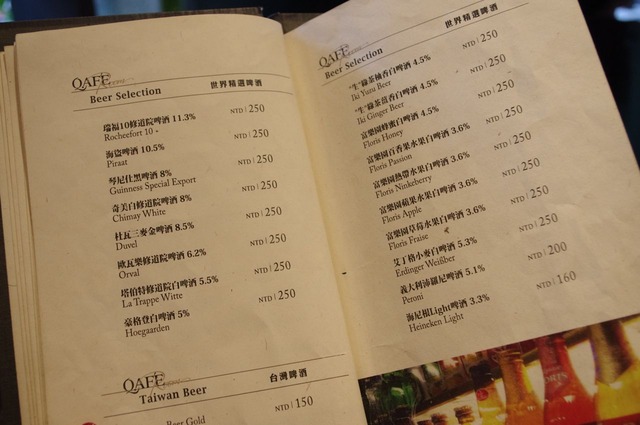 QAFE
Beer Selection 世界精選啤酒
瑞福10修道院啤酒 11.3% NTD | 250
Rocheefort 10
海盜啤酒 10.5% NTD | 250
Piraat
琴尼仕黑啤酒 8% NTD | 250
Guinness Special Export
奇美白修道院啤酒 8% NTD | 250
Chimay White
杜瓦三麥金啤酒 8.5% NTD | 250
Duvel
歐瓦樂修道院啤酒 6.2% NTD | 250
Orval
塔伯特修道院白啤酒 5.5% NTD | 250
La Trappe Witte
豪格登白啤酒 5% NTD | 250
Hoegaarden
QAFE
Taiwan Beer 台灣啤酒
Beer Gold NTD | 150
QAFE
Beer Selection 世界精選啤酒
"生"綠茶柚香白啤酒 4.5% NTD | 250
Iki Yuzu Beer
"生"綠茶薑香白啤酒 4.5% NTD | 250
Iki Ginger Beer
富樂園蜂蜜白啤酒 4.5% NTD | 250
Floris Honey
富樂園百香果水果白啤酒 3.6% NTD | 250
Floris Passion
富樂園熱帶水果白啤酒 3.6% NTD | 250
Floris Ninkeberry
富樂園蘋果水果白啤酒 3.6% NTD | 250
Floris Apple
富樂園草莓水果白啤酒 3.6% NTD | 250
Floris Fraise
艾丁格小麥白啤酒 5.3% NTD | 250
Erdinger Weißber
義大利沛羅尼啤酒 5.1% NTD | 200
Peroni
海尼根Light啤酒 3.3% NTD | 160
Heineken Light